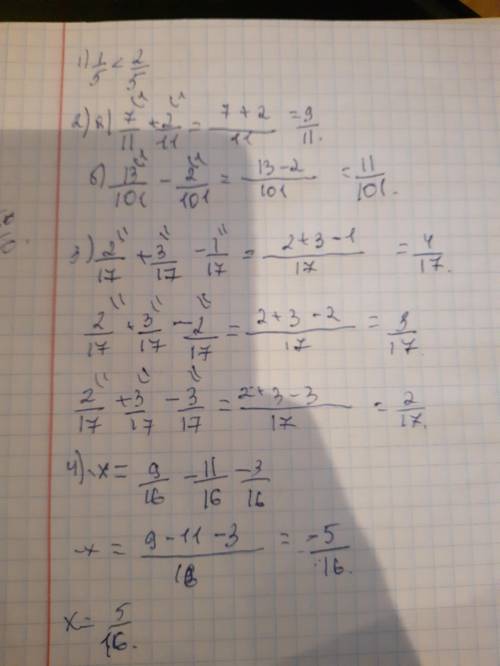 1) 1/5 < 2/5
2) а) 7/11 + 2/11 = (7+2)/11 = 9/11.
б) 13/101 - 2/101 = (13-2)/101 = 11/101.
3) 2/17 + 3/17 - 1/17 = (2+3-1)/17 = 4/17.
2/17 + 3/17 - 2/17 = (2+3-2)/17 = 3/17.
2/17 + 3/17 - 3/17 = (2+3-3)/17 = 2/17.
4) -x = 9/16 - 11/16 - 3/16
-x = (9-11-3)/16 = -5/16.
x = 5/16.